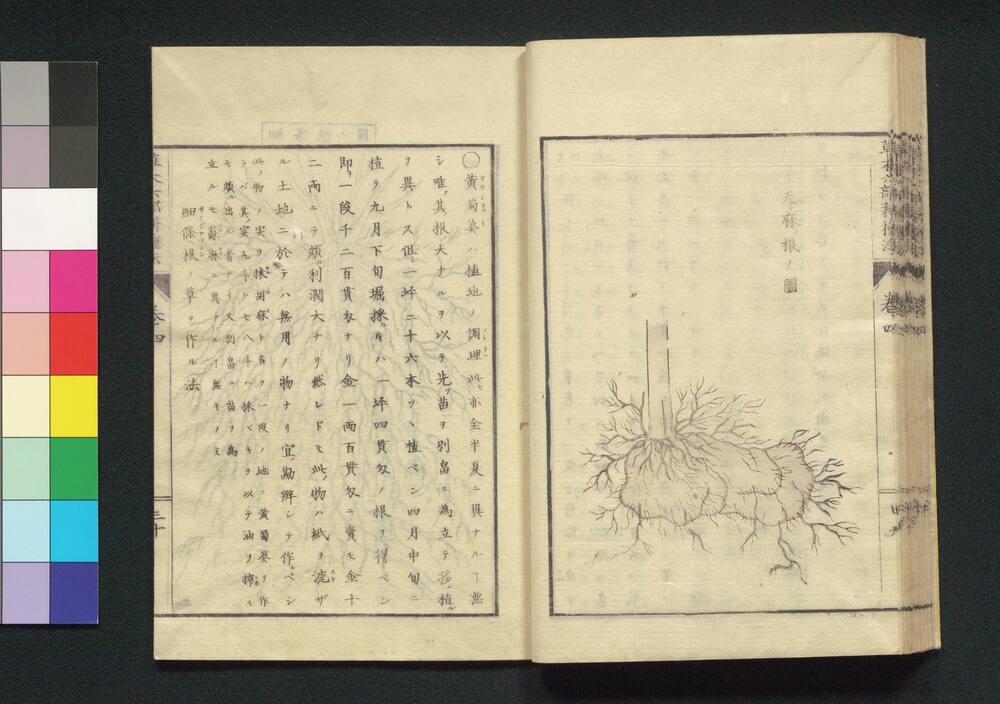 天麻ノ根ノ圖
卷四
○黃蜀葵ハ植地ノ調理此亦全半夏ニ異ナルヿ無
シ唯其根大ナルヲ以テ先苗ヲ別畠ニ為立テ移植
ヲ異トス但一坪ニ十六本ツヽ植ベシ四月中旬ニ
植テ九月下旬堀採ルキハ一坪四貫匁ノ根ヲ得ベシ
即一段千二百貫匁ナリ金一兩百貫匁ニ賣モ金十
二兩ニテ頗利潤大ナリ然レドモ此物ハ紙ヲ漉ザ
ル土地ニ於テハ無用ノ物ナリ宜勘辨シテ作ベシ
此ノ物ノ実ヲ胡麻ト名ク一段ノ地ニ黃蜀葵ヲ作
ラバ其実九斗トセ八斗ハ採ベキヲ以テ油ヲ搾ル
モ頗出ル者ナリ又別畠ニ苗ヲ為
立ルモ蘇麻ニ異ナルヿ無キノミ
細條根ノ草ヲ作ル法
卷四
三十